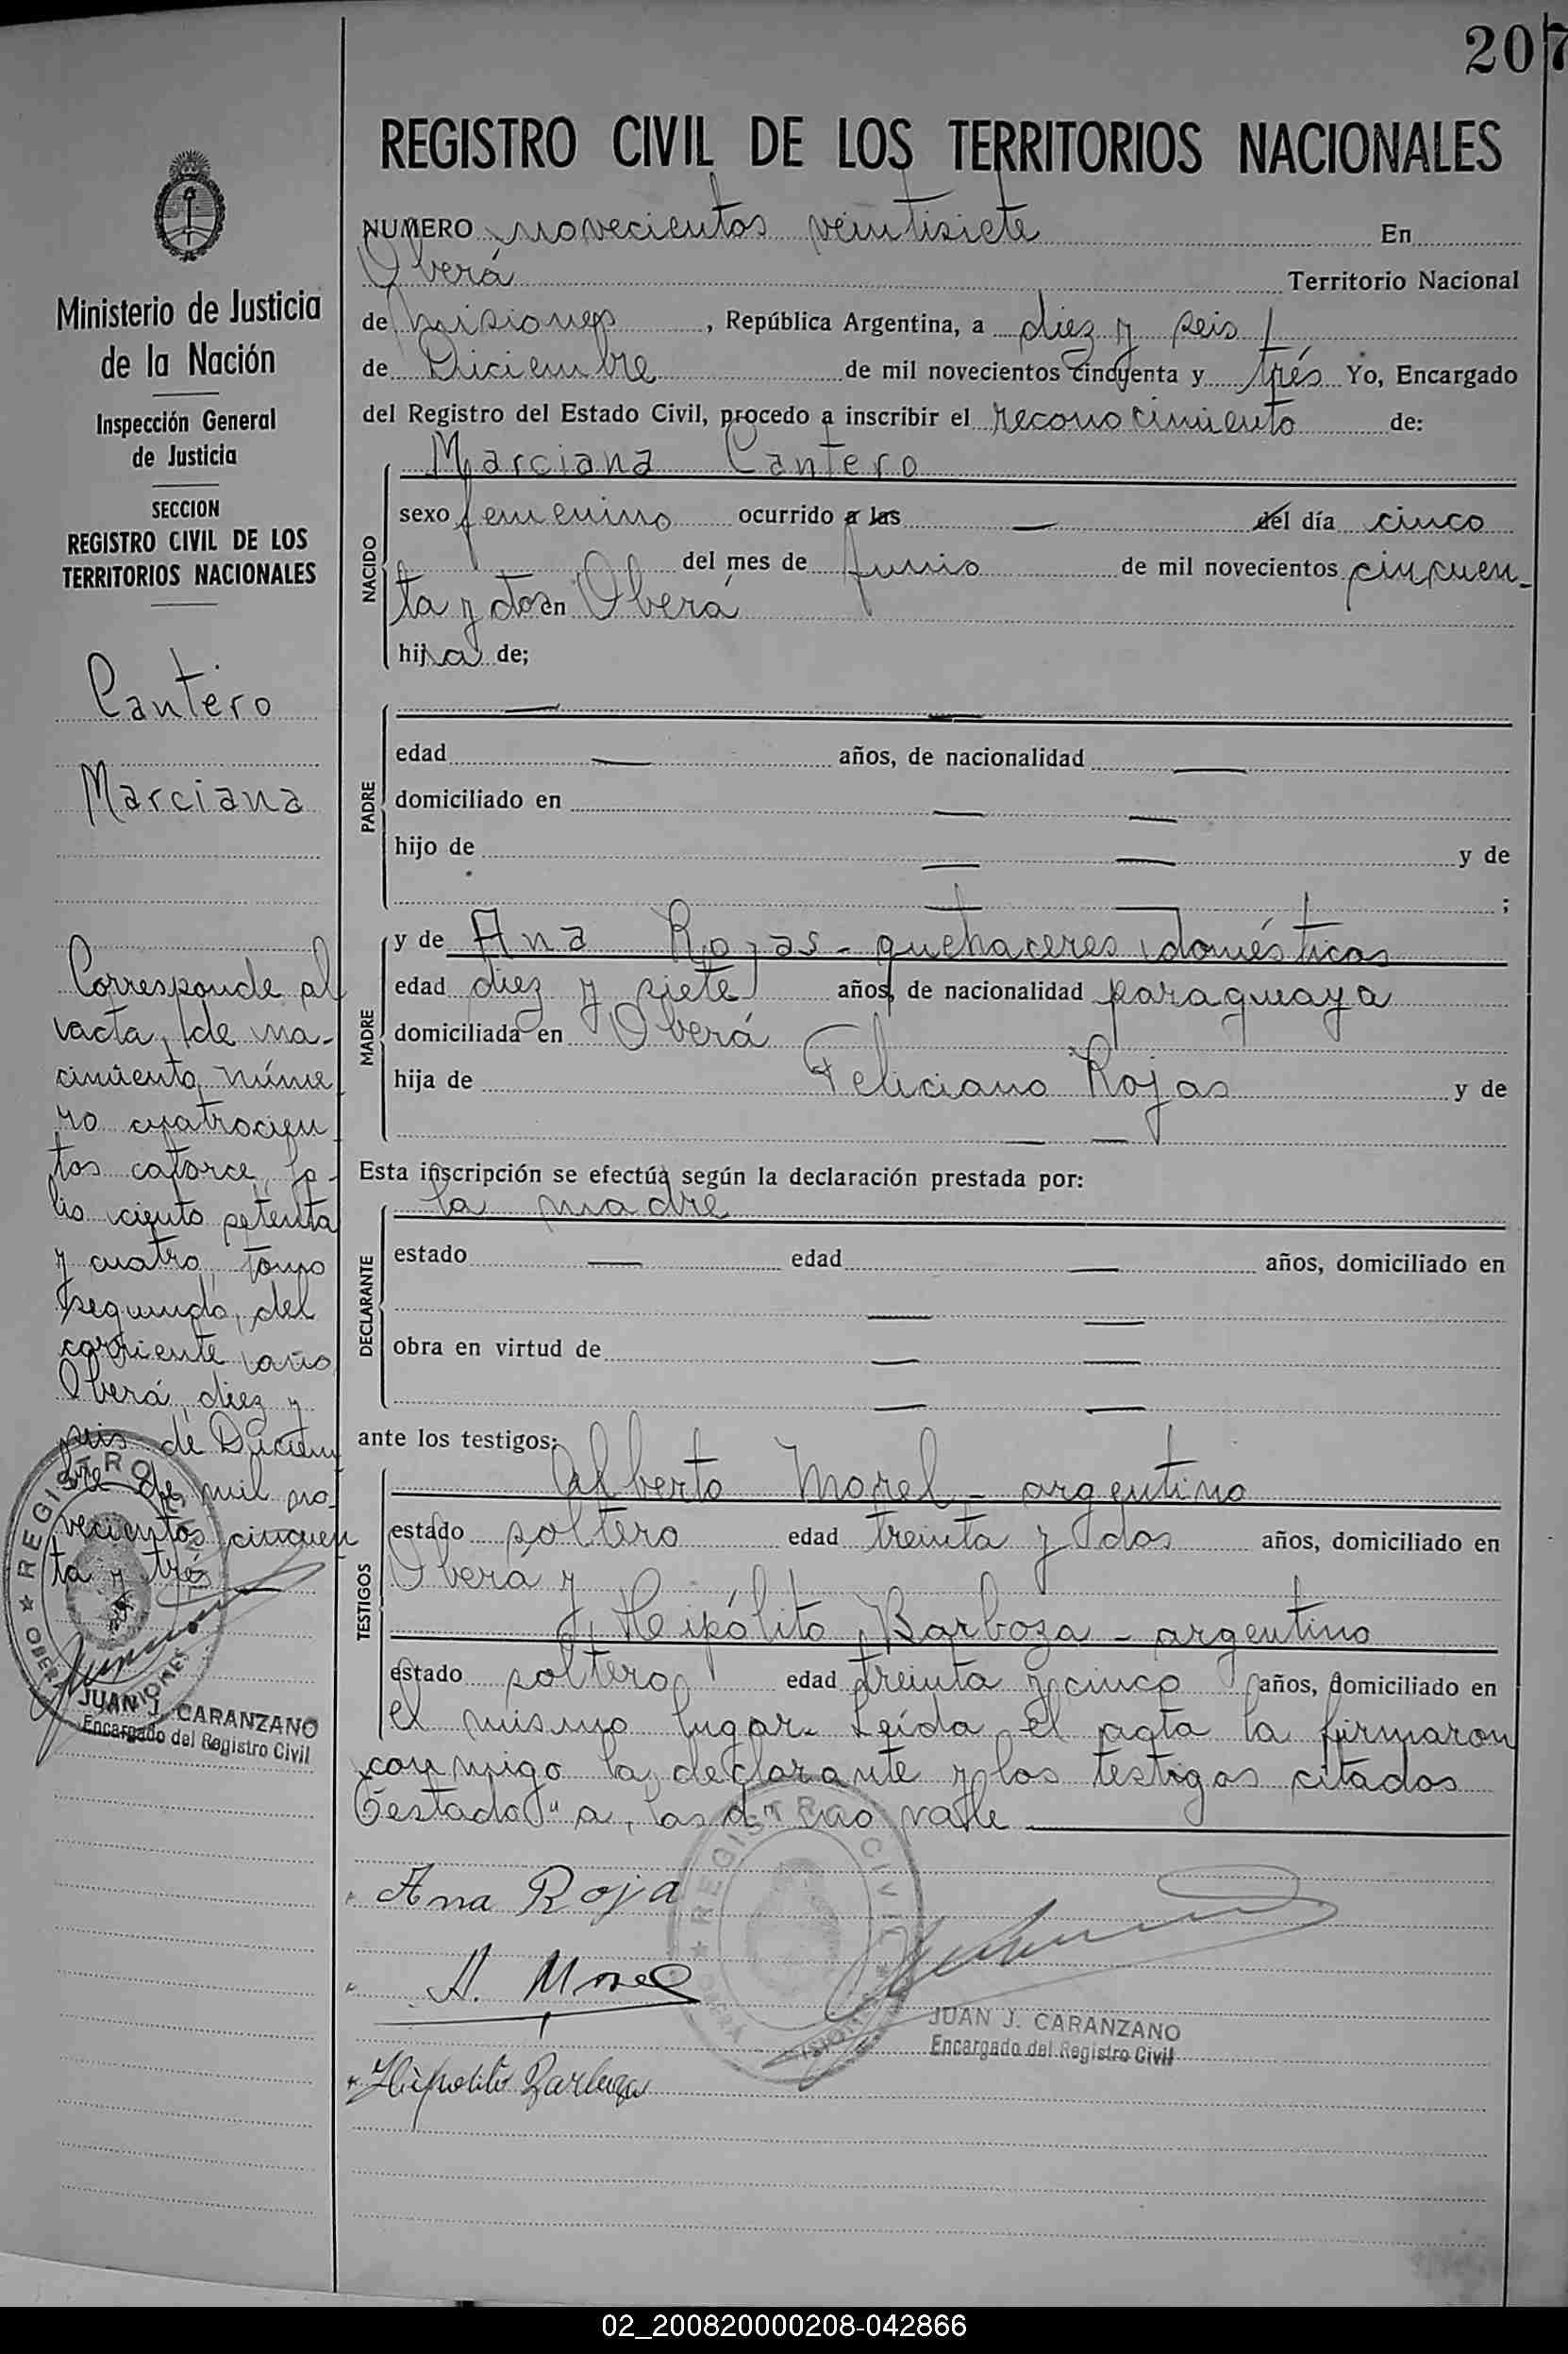 207
REGISTRO CIVIL DE LOS TERRITORIOS NACIONALES
NUMERO novecientos veintisiete En
Oberá Territorio Nacional
de Misiones, República Argentina, a diez y seis
de Diciembre de mil novecientos cincuenta y trés Yo, Encargado
del Registro del Estado Civil, procedo a inscribir el reconocimiento de:
Marciana Cantero
NACIDO
sexo femenino ocurrido a las — del día cinco
del mes de Junio de mil novecientos cincuen-
ta y dos en Oberá
hija de;
PADRE
— —
edad — años, de nacionalidad —
domiciliado en — —
hijo de — — y de
— — ;
MADRE
y de Ana Rojas - quehaceres domésticos
edad diez y siete años, de nacionalidad paraguaya
domiciliada en Oberá
hija de Feliciano Rojas y de
— —
Esta inscripción se efectúa según la declaración prestada por:
la madre
DECLARANTE
estado — edad — años, domiciliado en
— —
obra en virtud de — —
— —
ante los testigos:
TESTIGOS
Alberto Morel - argentino
estado soltero edad treinta y dos años, domiciliado en
Oberá y
Hipólito Barboza - argentino
estado soltero edad treinta y cinco años, domiciliado en
el mismo lugar. Leída el acta la firmaron
conmigo la declarante y los testigos citados
Testado "a, las d" no vale
Ana Roja
A. Morel
Hipolito Barboza
REGISTRO CIVIL
OBERÁ MISIONES
JUAN J. CARANZANO
Encargado del Registro Civil
Ministerio de Justicia
de la Nación
Inspección General
de Justicia
SECCION
REGISTRO CIVIL DE LOS
TERRITORIOS NACIONALES
Cantero
Marciana
Corresponde al
acta de na-
cimiento núme
ro cuatrocien
tos catorce, fo-
lio ciento setenta
y cuatro, tomo
segundo, del
corriente año
Oberá, diez y
seis de Diciem
bre de mil no-
vecientos cincuen
ta y trés
REGISTRO
OBERÁ MISIONES
JUAN J. CARANZANO
Encargado del Registro Civil
02_200820000208-042866